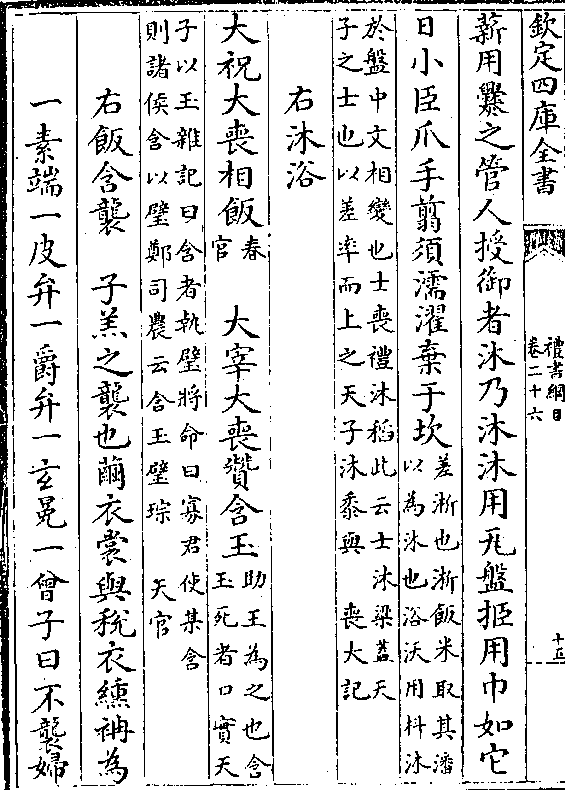 欽定四庫全書
禮書綱目
卷二十六
十五
薪用爨之管人授御者沐乃沐沐用瓦盤挋用巾如它
日小臣爪手翦須濡濯棄于坎差淅也淅飯米取其潘
以為沐也浴沃用枓沐
於盤中文相變也士喪禮沐稻此云士沐梁葢天
子之士也以差率而上之天子沐黍與 喪大記
右沐浴
大祝大喪相飯春
官 大宰大喪贊含玉助王為之也含
玉死者口實天
子以玉雜記曰含者執璧將命曰寡君使某含
則諸侯含以璧鄭司農云含玉璧琮 天官
右飯含襲 子羔之襲也繭衣裳與稅衣纁袡為
一素端一皮弁一爵弁一玄冕一曾子曰不襲婦